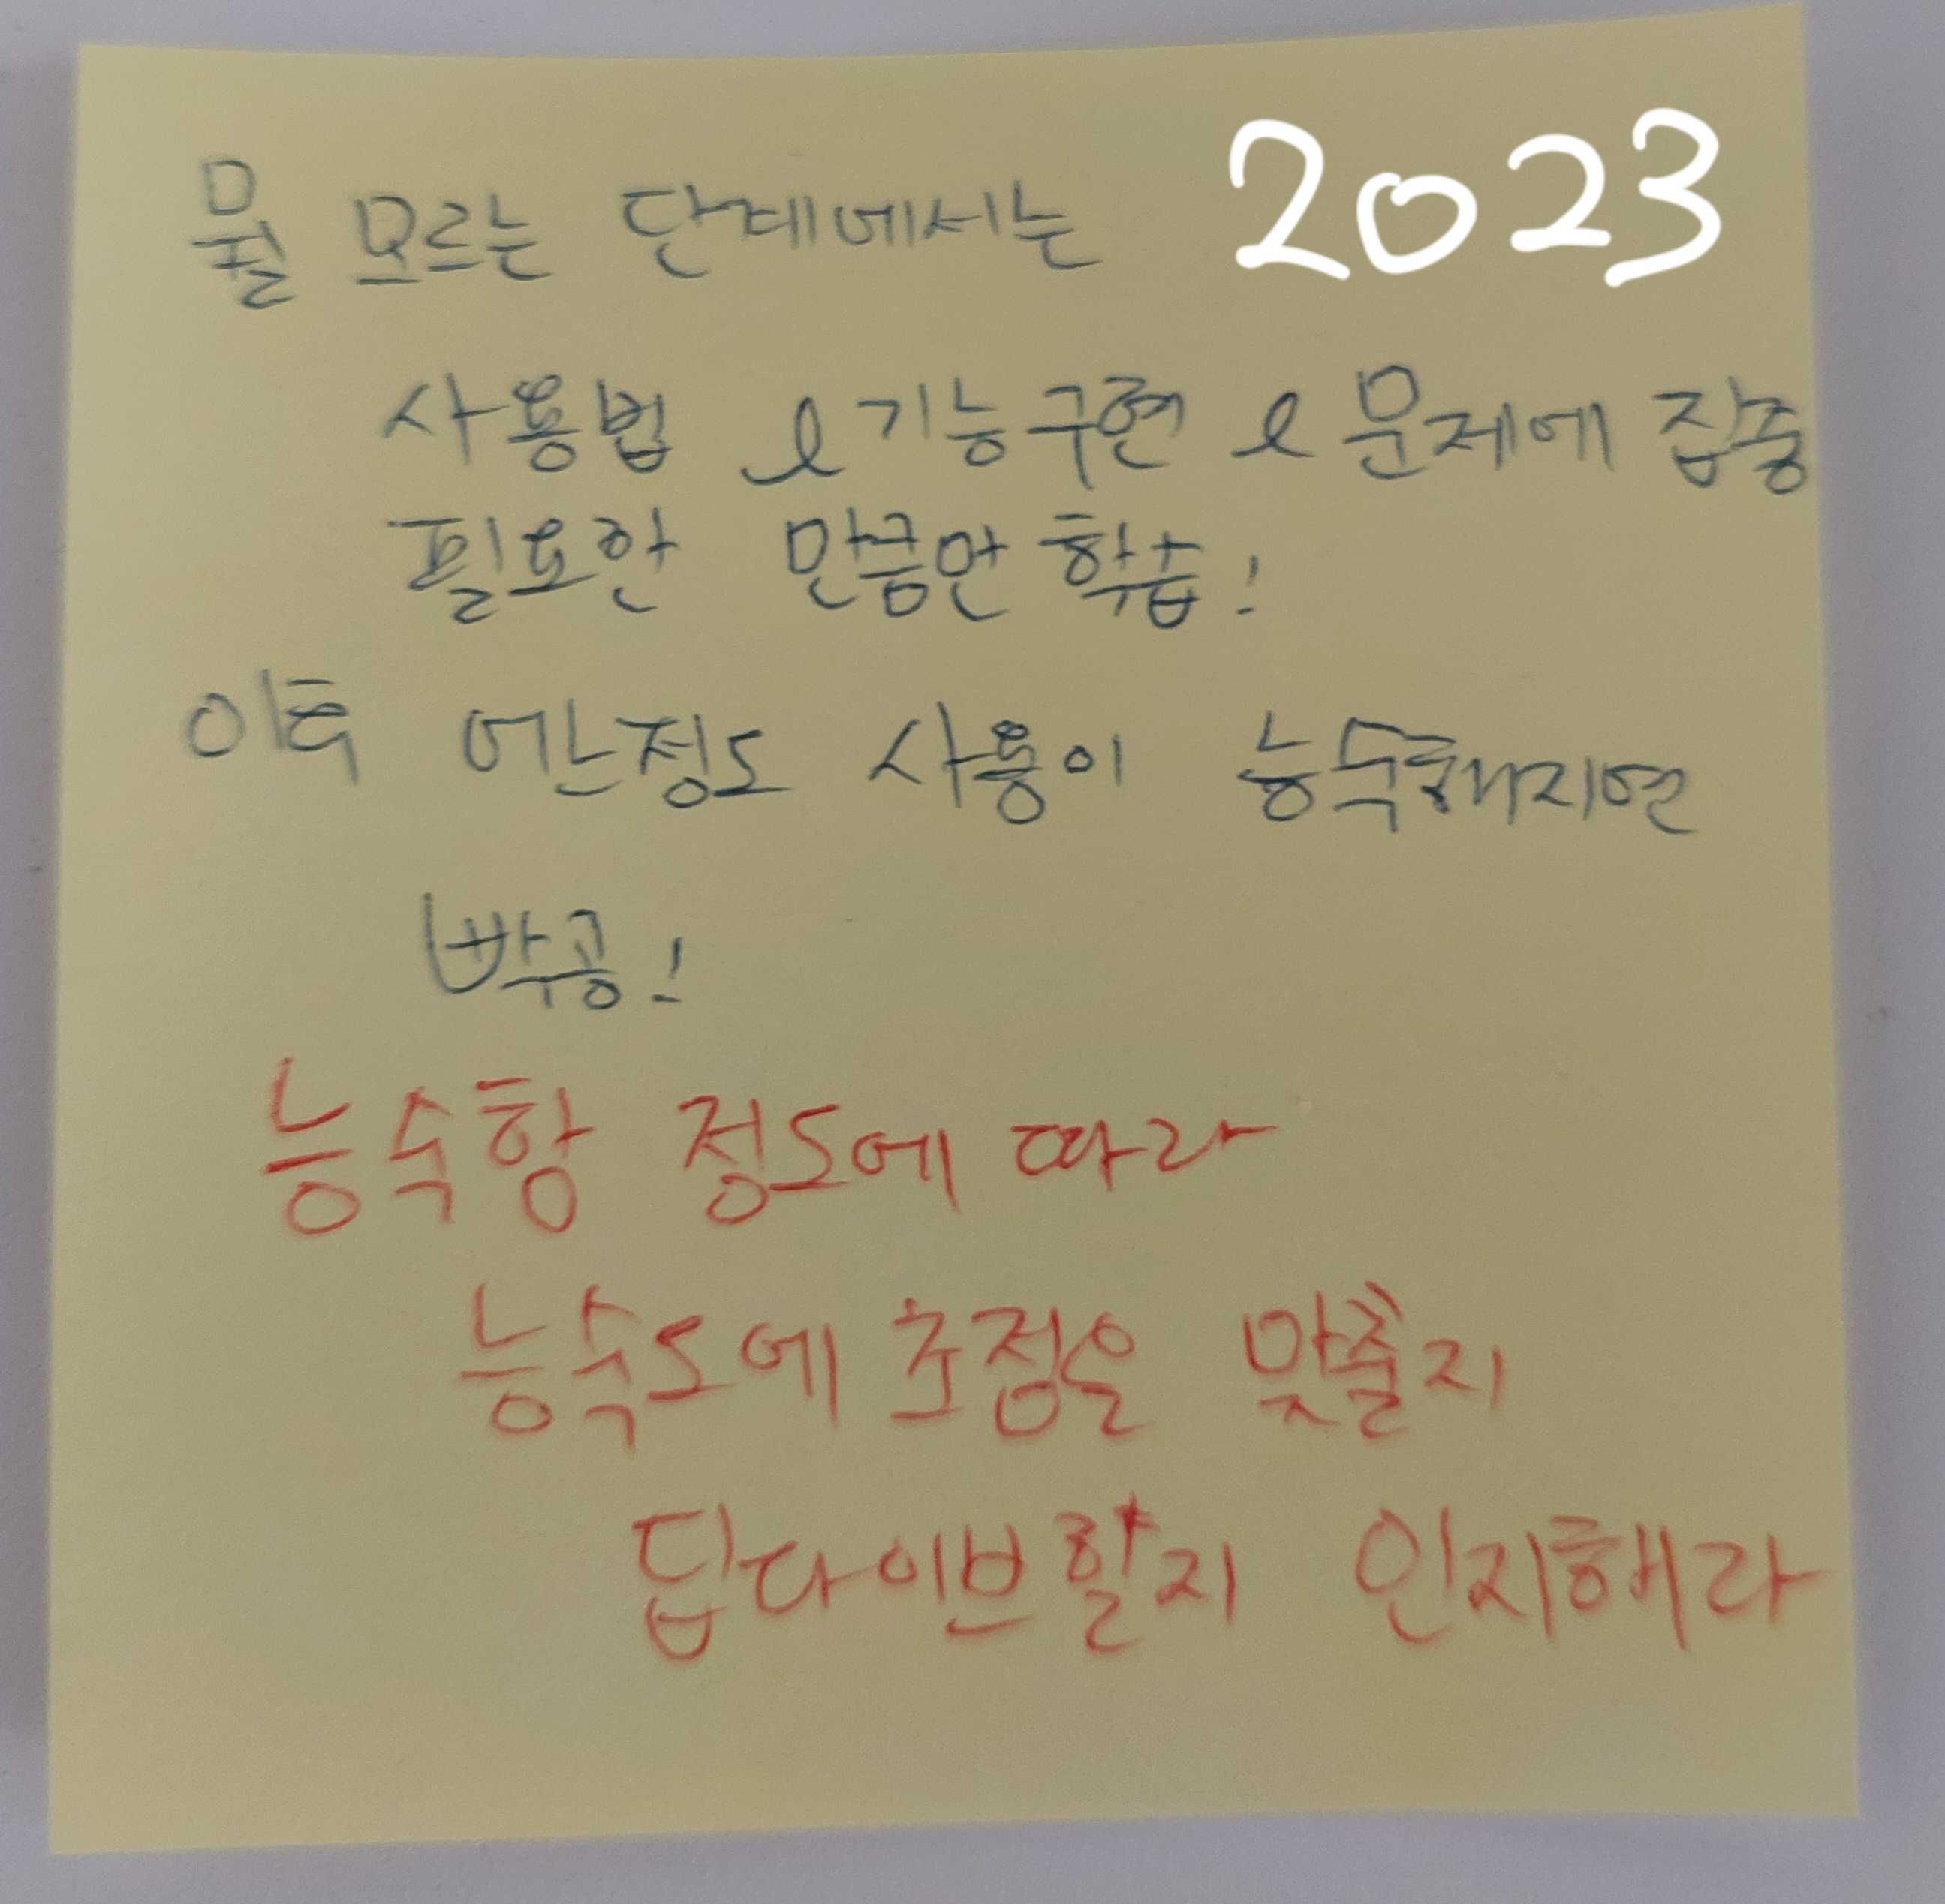 뭘 모르는 단계에서는 2023
사용법 & 기능구현 & 문제에 집중
필요한 만큼만 학습!
이후 어느정도 사용이 능숙해지면
빡공!
능숙함 정도에 따라
능숙도에 초점을 맞출지
딥다이브할지 인지해라